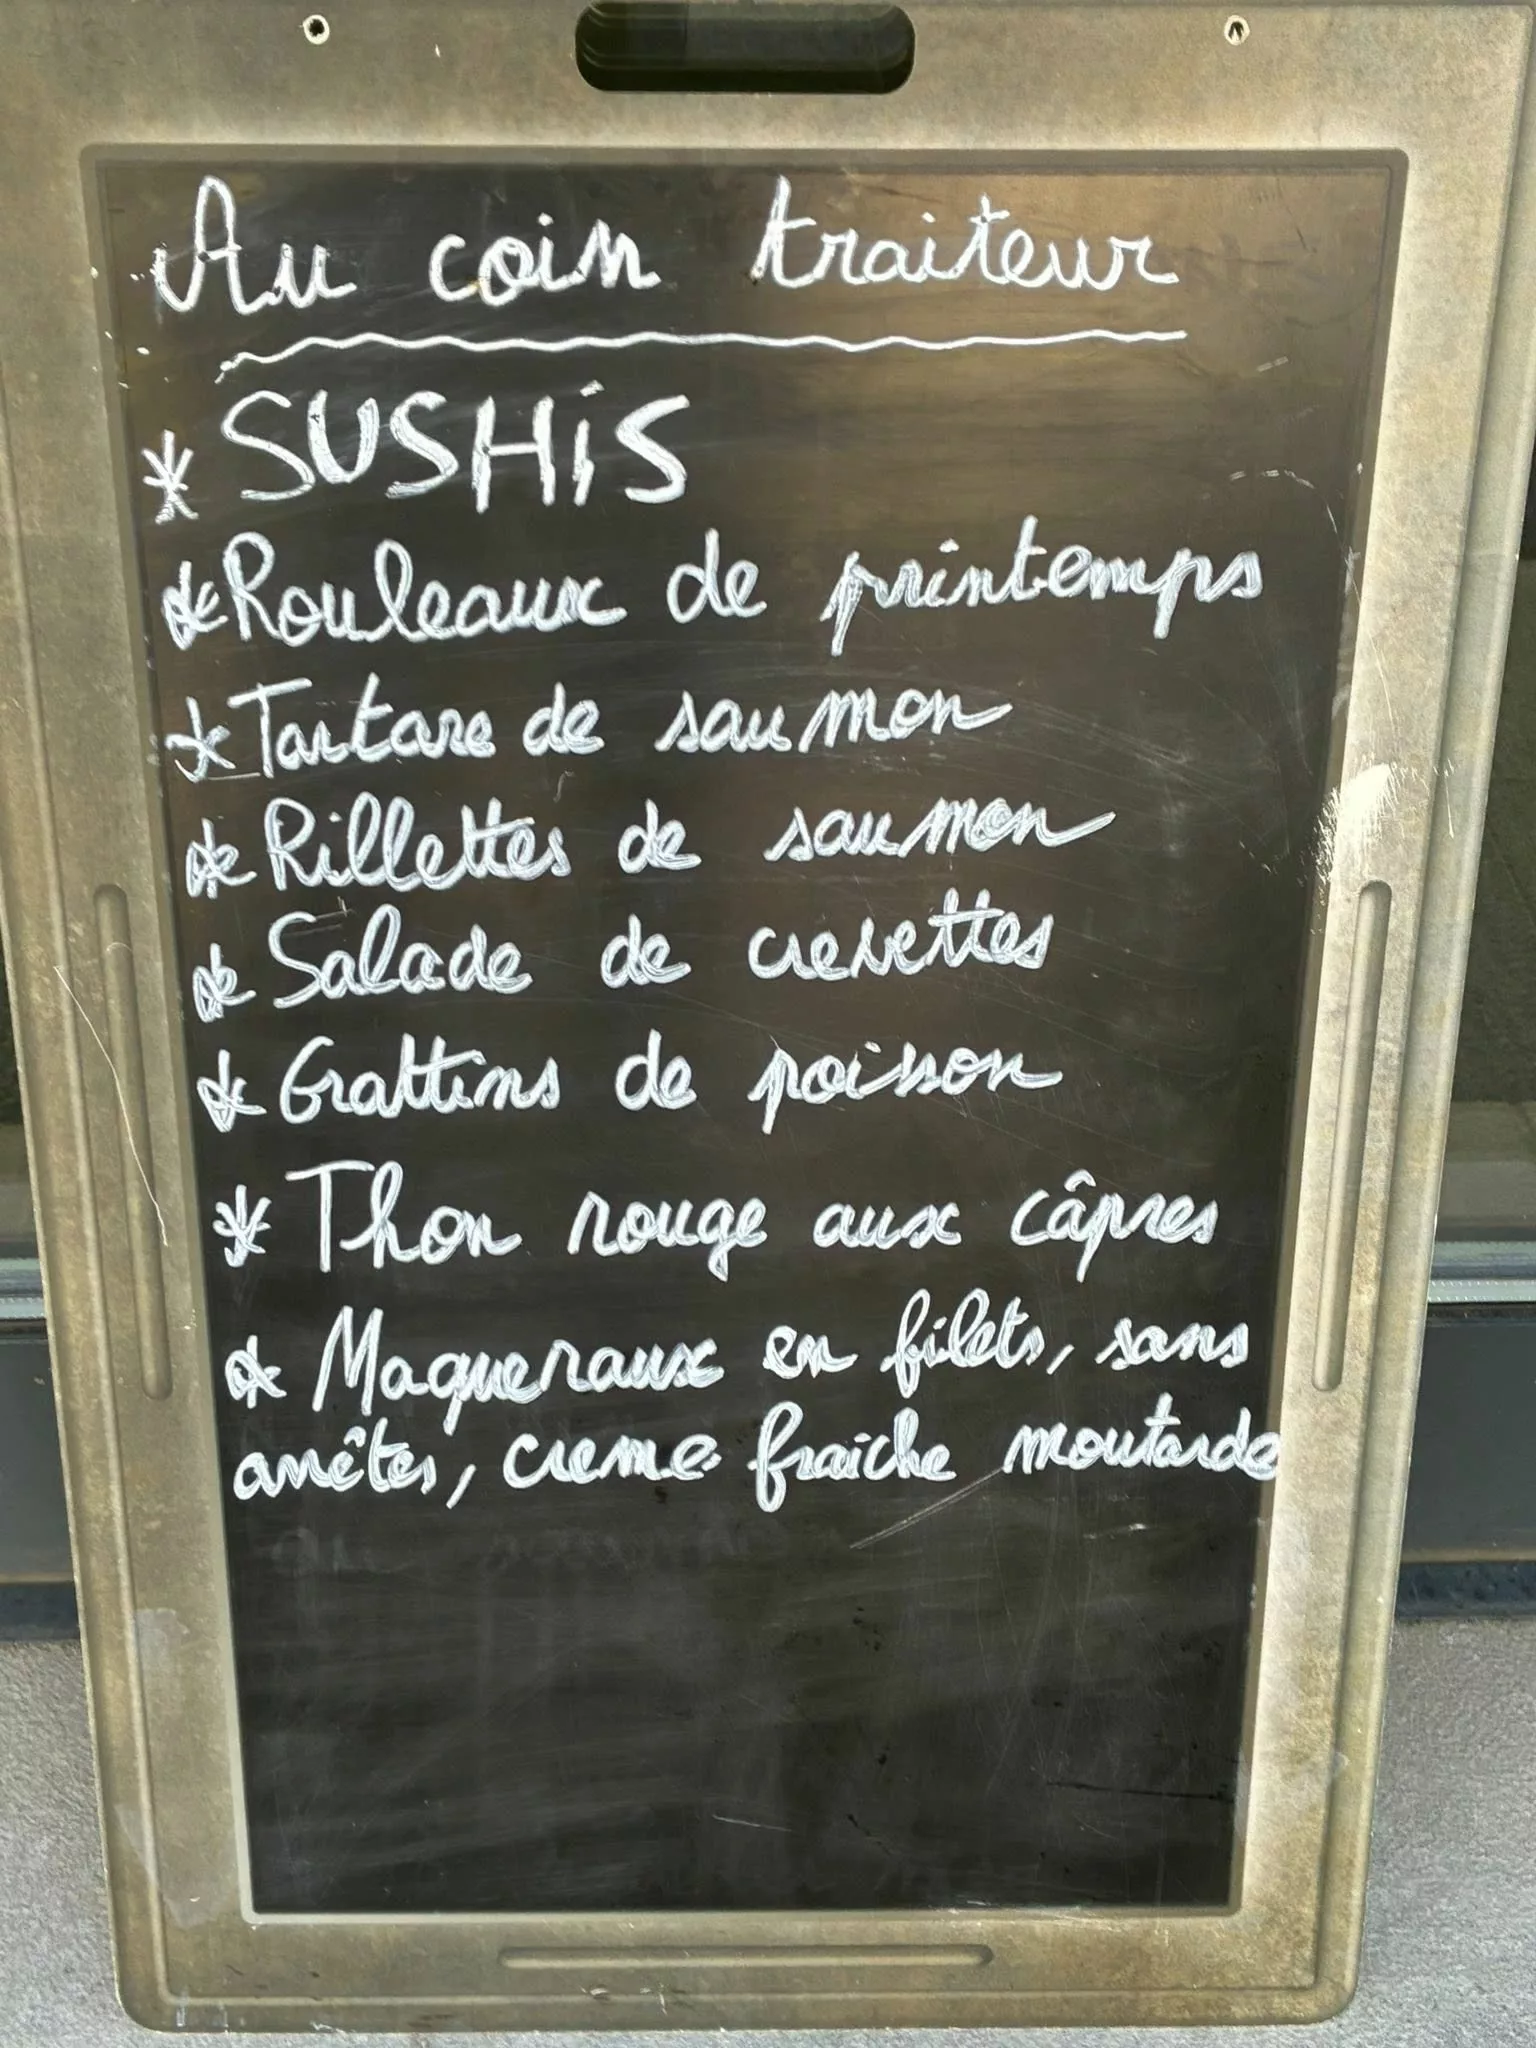 Au coin traiteur
* SUSHiS
* Rouleaux de printemps
* Tartare de saumon
* Rillettes de saumon
* Salade de crevettes
* Grattins de poisson
* Thon rouge aux câpres
* Maqueraux en filets, sans
arrêtes, creme fraiche moutarde